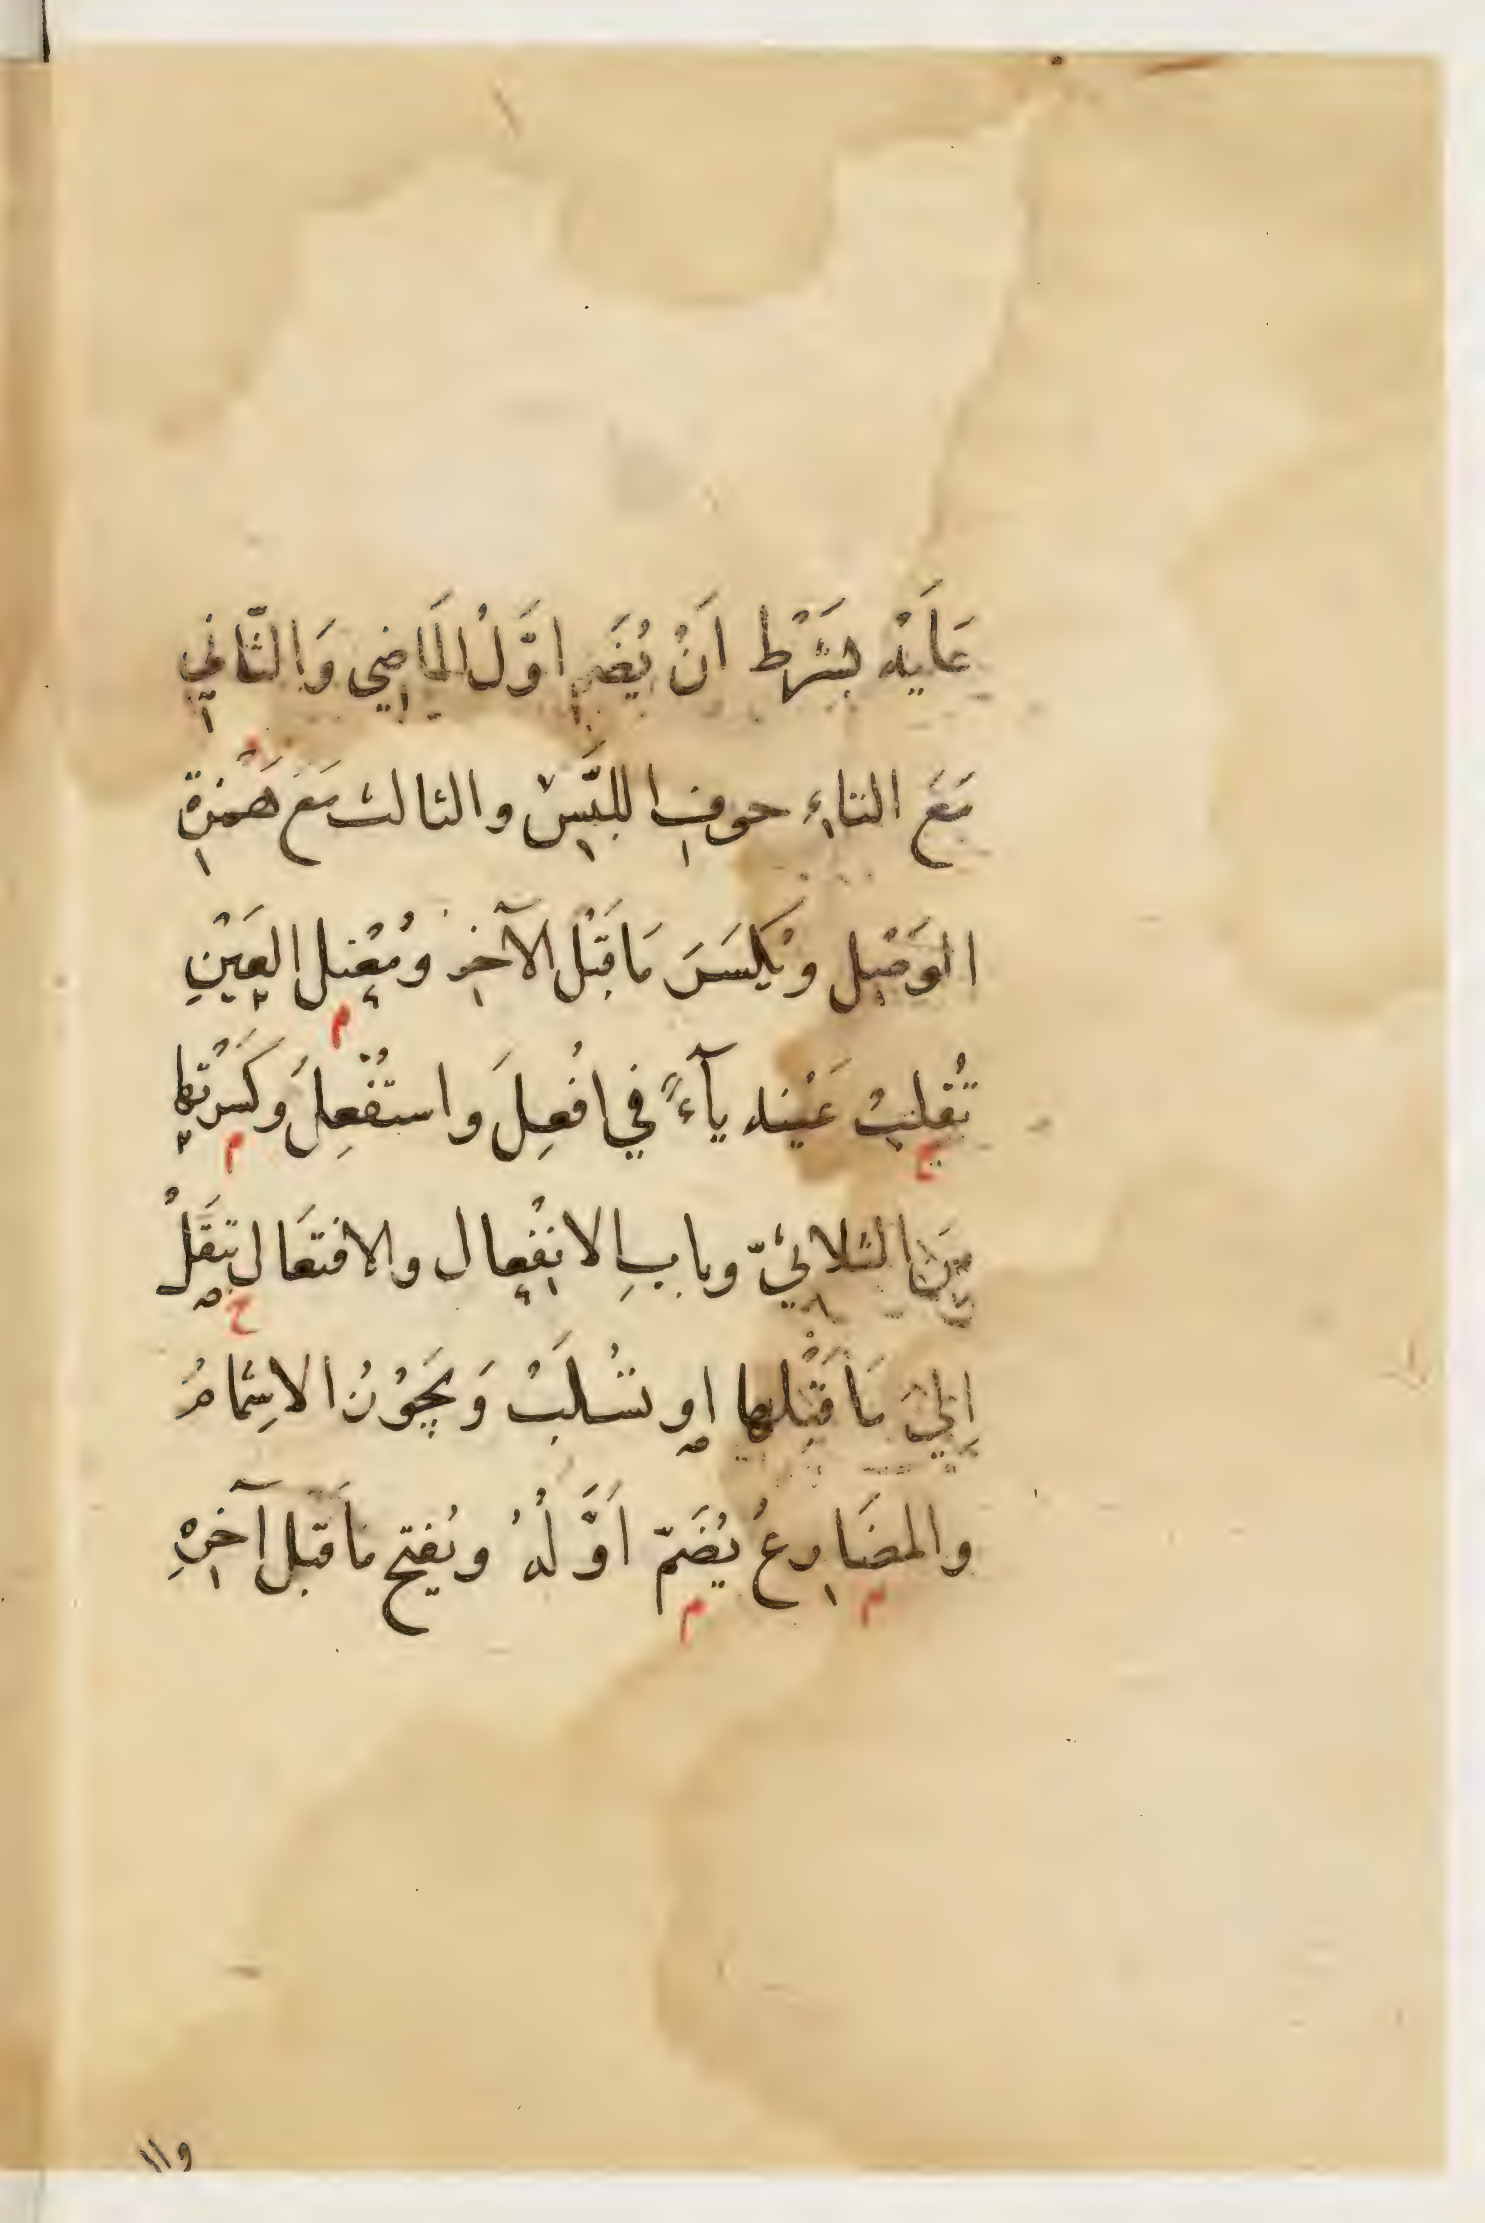 عَلَيْه بشَرْط اَنْ يُضَم اوَّلُ المَاضِي وَالثّانِي
مَعَ التاءِ حوفِ اللبَّسْ والثالث مَعَ هَمْزةِ
الوَصْل ويُكسَرَ مَا قَبْلَ الآخِر ومُعْتل العَيْنِ
تُقلبُ عَيْنه يآءً في افُعِلَ واستُفْعِلَ وكَسَرتُها
مِنَ الثلاثيّ وبابِ الانْفِعال والافتعَال تنقَلُ
اِليَ مَا قَبْلها او تسُلَبُ وَيجَوْزُ الاشِمامُ
والمضَارعُ يُضَمّ اَوَّلُهُ ويُفتح مَا قبل آخِرِهِ
م
م
ح
ح
م
م